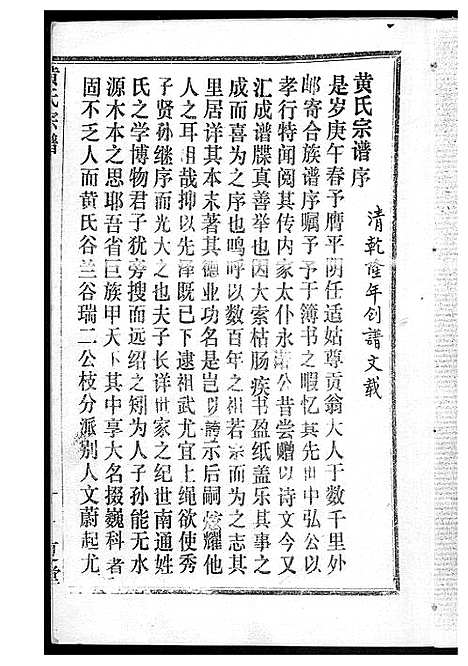 黄氏宗谱序
清乾隆年创譜文载
是岁庚午春予膺平阴任适姑尊贡翁大人于数千里外
邮寄合族谱序嘱予予于簿书之暇忆其先世中弘公以
孝行特闻阅其传内家太仆永公昔尝赠以诗文今又
汇成谱牒真善举也因大索枯肠疾书盈纸盖乐其事之
成而喜为之序也呜呼以数百年之祖若宗而为之志其
里居详其本末著其德业功名是岂以誇示后嗣炫耀他
人之耳目哉抑以先泽既已下逮祖武尤宜上绳欲使秀
子贤孙继序而光大之也夫子长详世家之纪世南通姓
氏之学博物君子犹旁搜而远绍之矧为人子孙能无水
源木本之思耶吾省巨族甲天下其中享大名掇巍科者
固不乏人而黄氏谷兰谷瑞二公枝分派别人文蔚起尤
黄氏宗譜